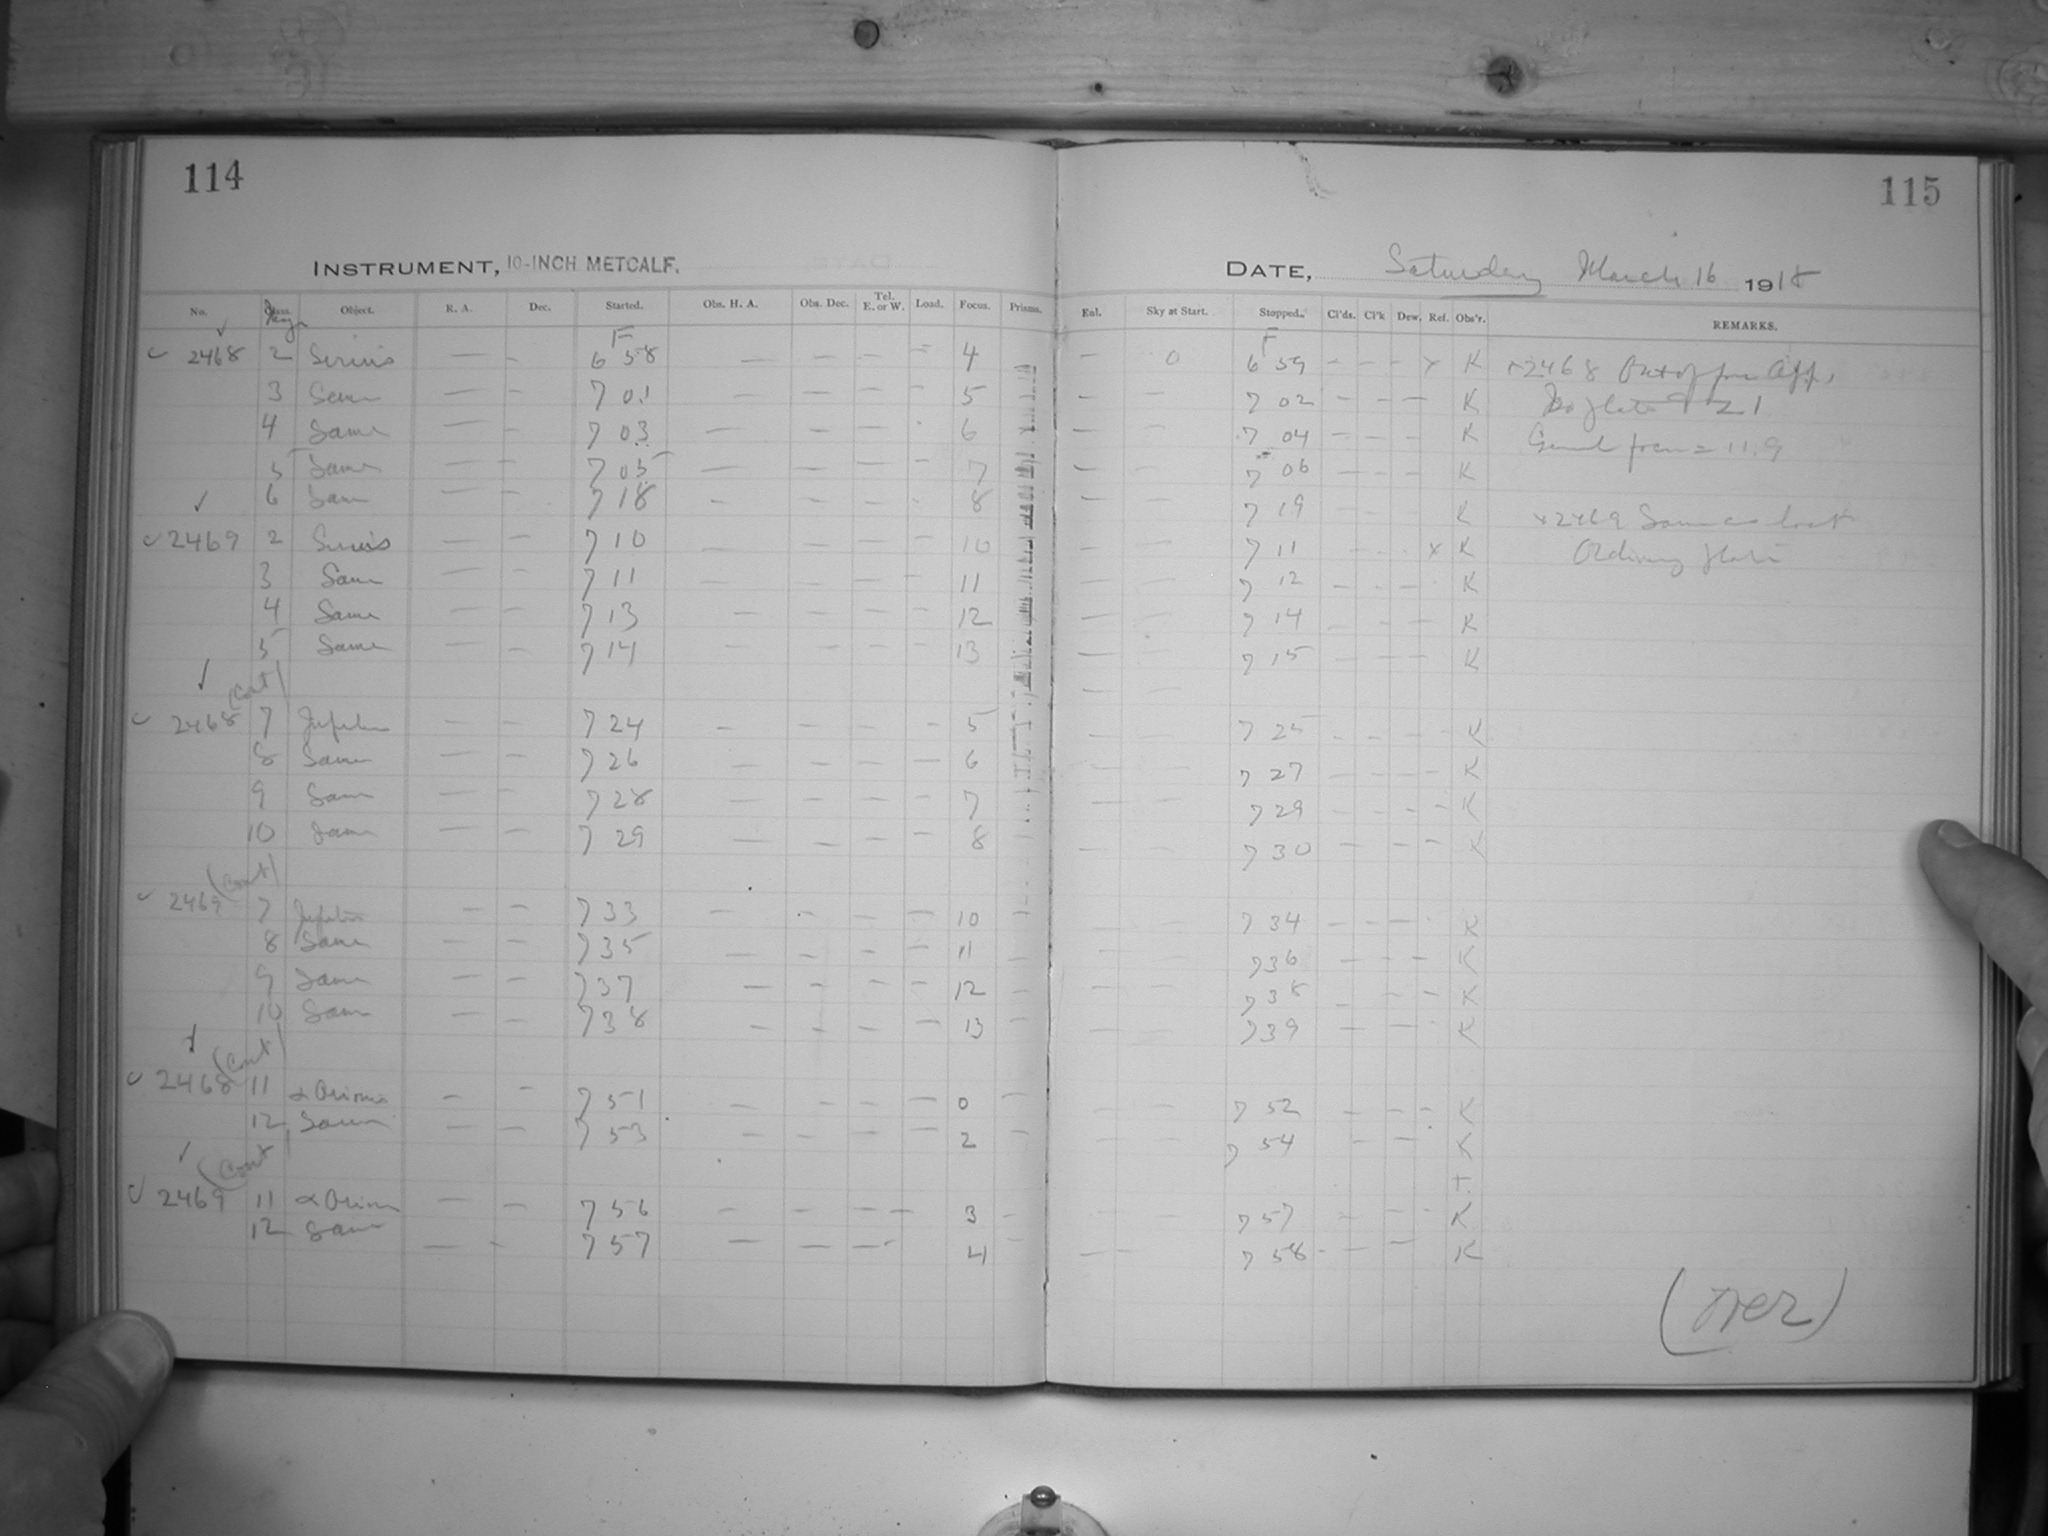 114
115
INSTRUMENT, 10-INCH METCALF.
DATE, Saturday March 16 1918
No. Object. R. A. Dec. Started. Obs. H. A. Obs. Dec. Tel. E. or W. Load. Focus. Prisms. Eal. Sky at Start. Stopped. Cl'ds. Cl'k Dew. Ref. Obs'r. REMARKS.
F F
2468 2 Sirius — — 6 58 — — — — 4 — 0 6 59 — — — x K x2468 App.
3 Same — — 7 01 — — — — 5 — — 7 02 — — — K
4 Same — — 7 03 — — — 6 — — 7 04 — — — K = 11.9
5 Same — — 7 05 — — — — 7 — — 7 06 — — — K
6 Same — — 7 18 — — — 8 — — 7 19 K x2469 Same as last
2469 2 Sirius — — 7 10 — — — — 10 — — 7 11 — — x K Ordinary plate
3 Same — — 7 11 — — — — 11 — — 7 12 — — — K
4 Same — — 7 13 — — — — 12 — — 7 14 — — — K
5 Same — — 7 14 — — — — 13 — — 7 15 — — — K
(Cont)
2468 7 Jupiter — — 7 24 — — — — 5 — — 7 25 — — — — K
8 Same — — 7 26 — — — — 6 — — 7 27 — — — K
9 Same — — 7 28 — — — — 7 — — 7 29 — — — — K
10 Same — — 7 29 — — — 8 7 30 — — — K
(Cont)
2469 7 Jupiter — — 7 33 — — — — 10 — — — 7 34 — — — K
8 Same — — 7 35 — — — — 11 — — — 7 36 — — — K
9 Same — — 7 37 — — — — 12 — — — 7 38 — — — K
10 Same — — 7 38 — — — — 13 — — — 7 39 — — — K
(Cont)
2468 11 α Orionis — — 7 51 — — — — 0 — — — 7 52 — — — K
12 Same — — 7 53 — — — — 2 — — — 7 54 — — K
(Cont)
2469 11 α Orion — — 7 56 — — — — 3 — 7 57 — — — K
12 Same — — 7 57 — — — 4 — — — 7 58 — — — K